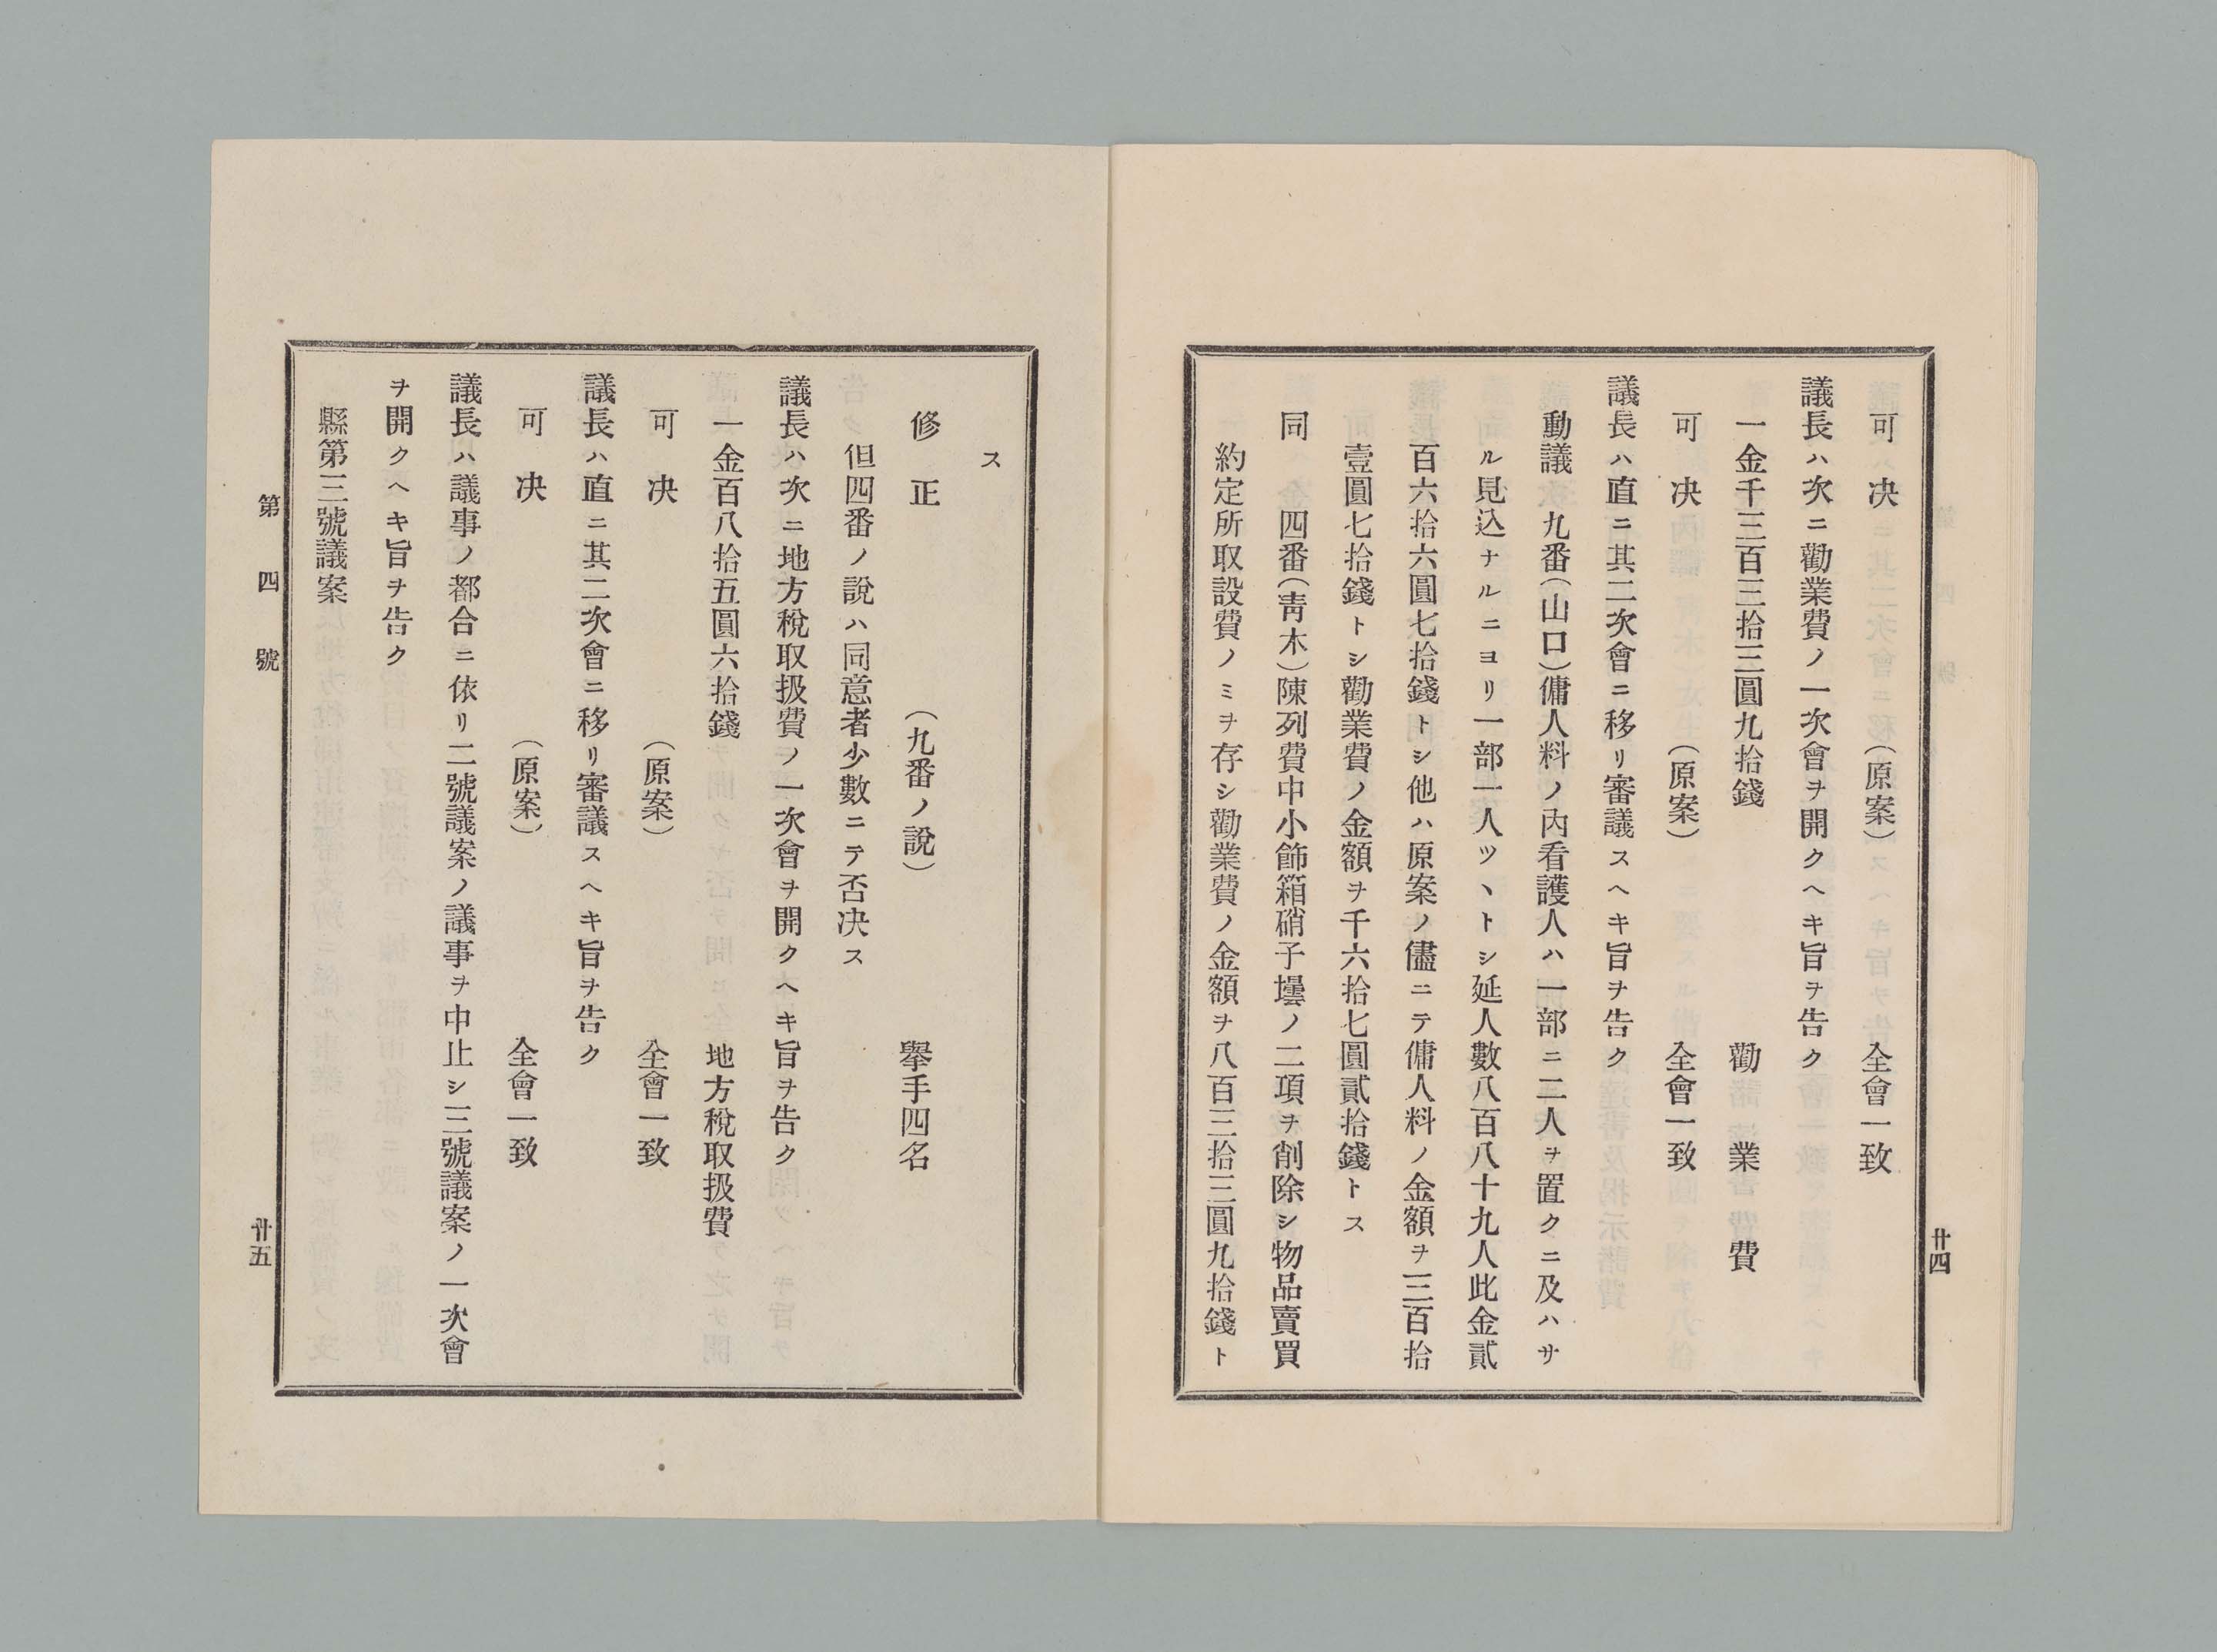 可決　（原案）　全會一致
議長ハ次ニ勸業費ノ一次會ヲ開クヘキ旨ヲ告ク
一金千三百三拾三圓九拾錢　勸業費
可決　（原案）　全會一致
議長ハ直ニ其二次會ニ移リ審議スヘキ旨ヲ告ク
動議　九番（山口）傭人料ノ內看護人ハ一部ニ二人ヲ置クニ及ハサ
ル見込ナルニヨリ一部一人ツヽトシ延人數八百八十九人此金貳
百六拾六圓七拾錢トシ他ハ原案ノ儘ニテ傭人料ノ金額ヲ三百拾
壹圓七拾錢トシ勸業費ノ金額ヲ千六拾七圓貳拾錢トス
同　四番（靑木）陳列費中小飾箱硝子壜ノ二項ヲ削除シ物品賣買
約定所取設費ノミヲ存シ勸業費ノ金額ヲ八百三拾三圓九拾錢ト
廿四
ス
修正　（九番ノ說）　擧手四名
但四番ノ說ハ同意者少數ニテ否決ス
議長ハ次ニ地方稅取扱費ノ一次會ヲ開クヘキ旨ヲ告ク
一金百八拾五圓六拾錢　地方稅取扱費
可決　（原案）　全會一致
議長ハ直ニ其二次會ニ移リ審議スヘキ旨ヲ告ク
可決　（原案）　全會一致
議長ハ議事ノ都合ニ依リ二號議案ノ議事ヲ中止シ三號議案ノ一次會
ヲ開クヘキ旨ヲ告ク
縣第三號議案
第四號　廿五